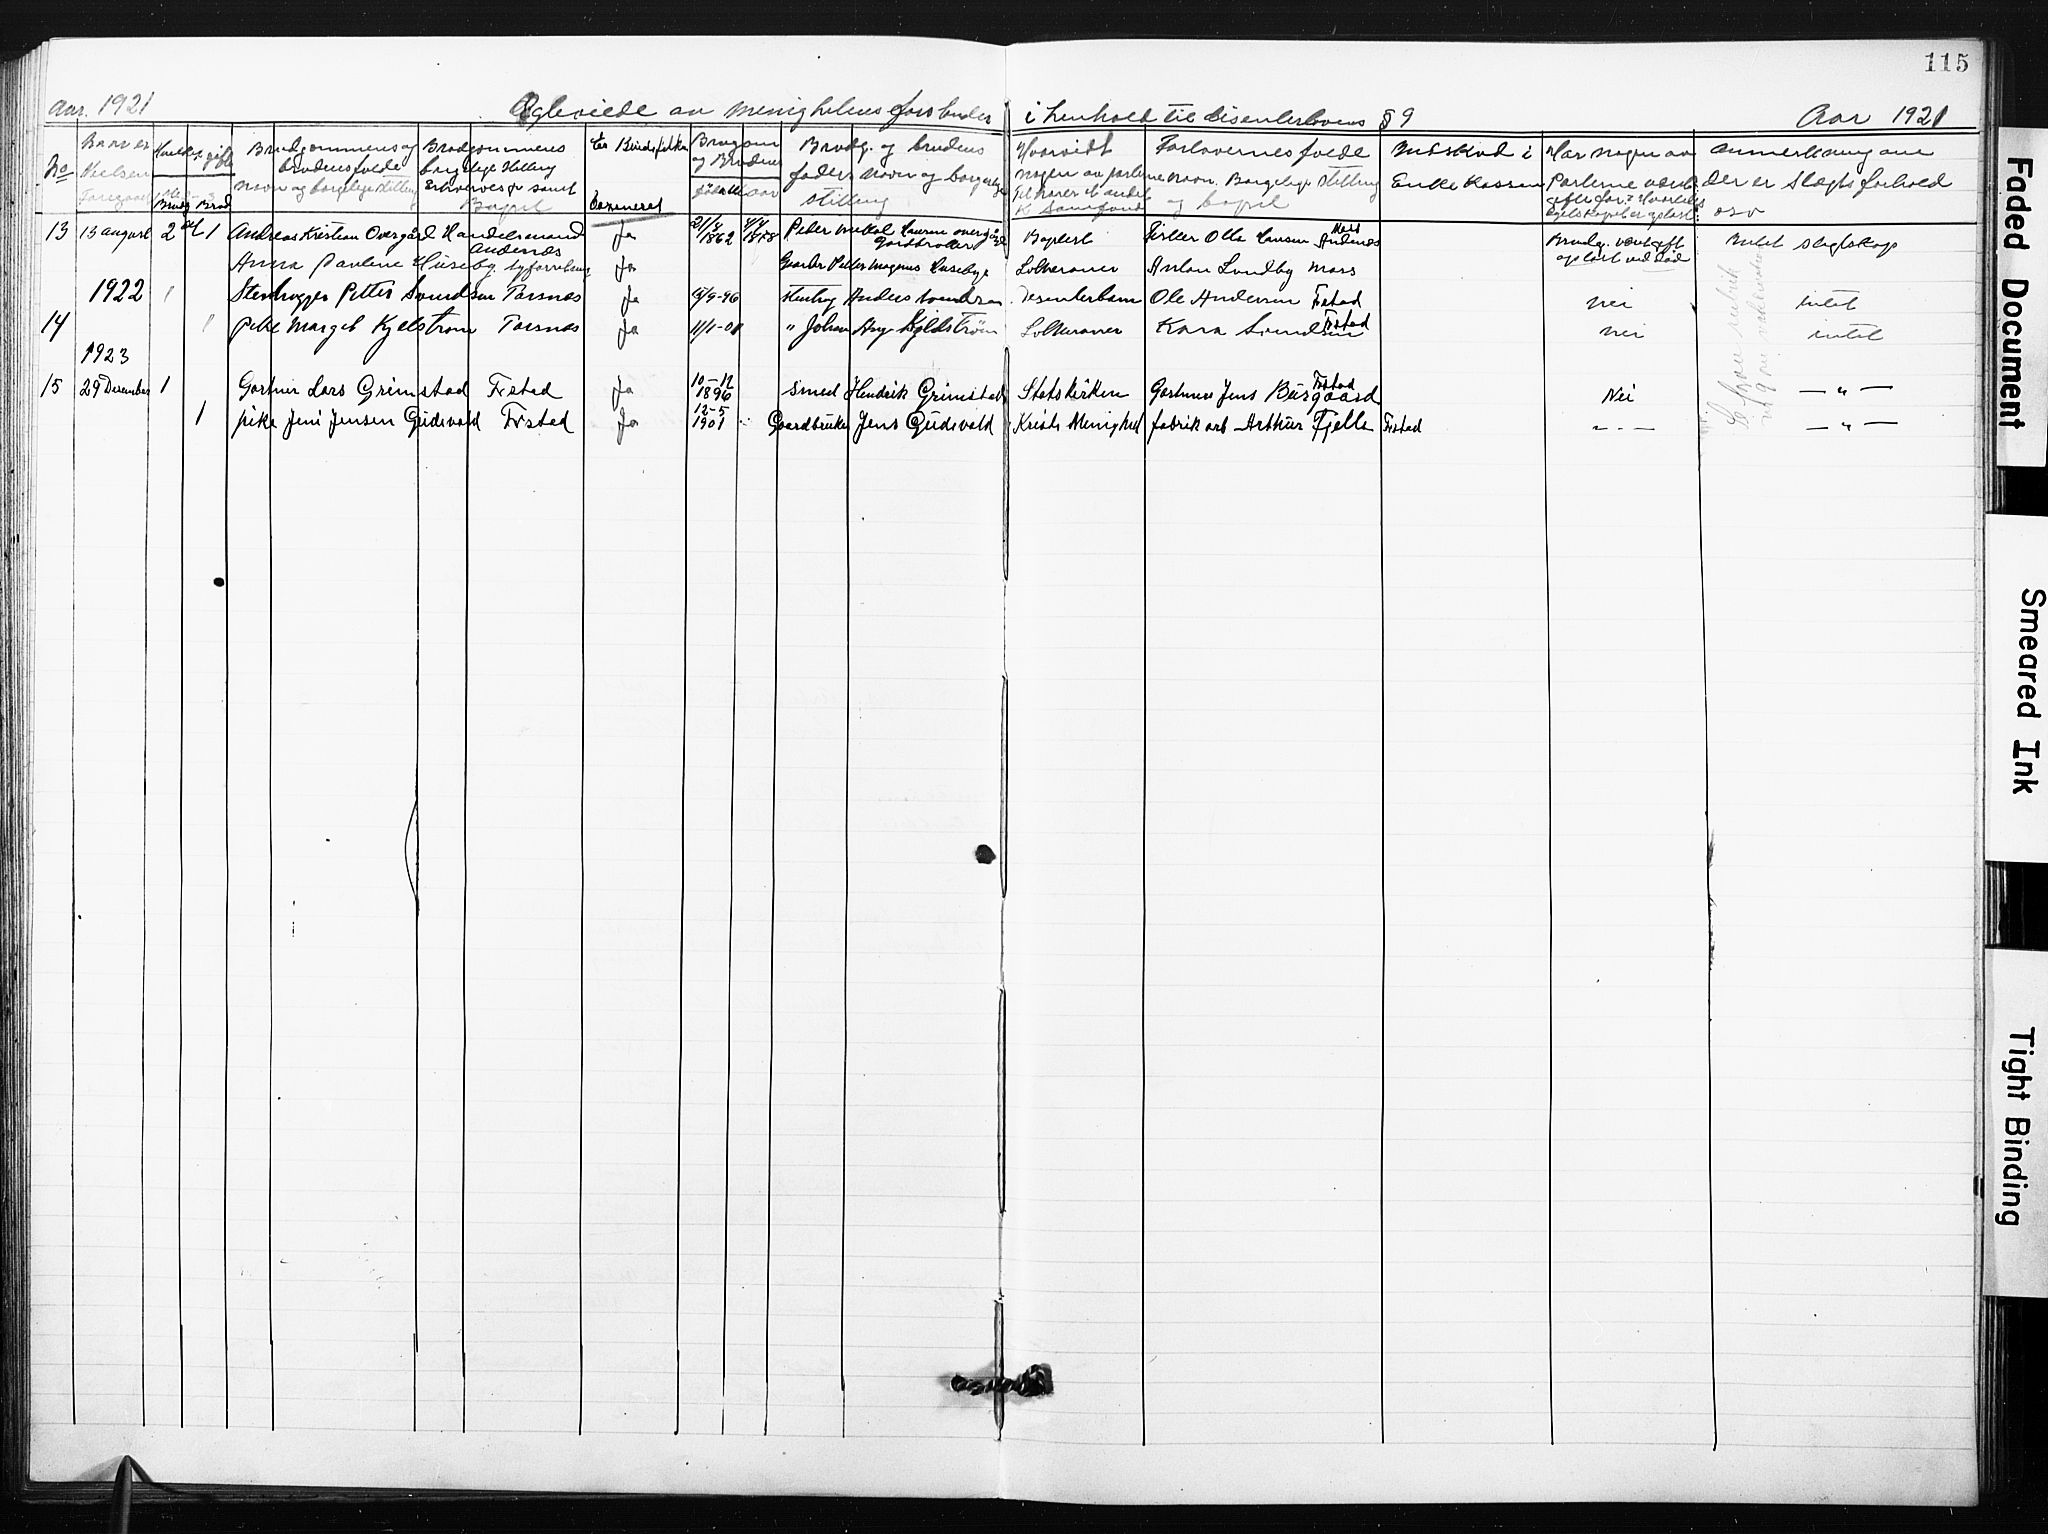 115
Aar. 1921 Ægteviede av menighetens forstander i henhold til disenterlovens § 9 Aar 1921
No
Naar er Vielsen Foregaaet
Brudg Brud
Brudgommens og brudens fulde navn og borgelige stilling
Brudgommens borgelige stilling Erhverves samt Bopæl
Er Bindspikken Examineret
Brudgom og Brudens fødselsaar
Brudg. og brudens faders navn og borgerlige stilling
Hvorvidt nogen av parterne tilhører et andet K Samfund
Forlovernes fulde navn. Borgelige stilling og bopæl
Indskud i Enkekassen
Har nogen av Parterne været gift før? Hvorledes egteskapet er opløst
Anmerkning om der er Slægtsforhold osv
13 13 august 2det 1 Andreas Kristian Overgård Handelsmand Andenæs Ja 21/8 1862 Peter Mikal Hansen overgård Gaardbruker Baptist Fisker Olle Hansen Andenæs Brudg. været gift opløst ved død Intet slegtskap
Anna Pauline Huseby. Ja Gaardbr Petter Magnus Husebye Lutheraner Anton Lundby Moss
1922 1 Stenhugger Petter Svendsen Torsnes Ja 15/9-96 stenhug Anders Svendsen Desenterbarn Ole Andersen Frstad Nei intet
14 1 Pike Margit Kjellstrøm Torsnes Ja 11/1-01 " Johan Aug Kjeldstrøm Lutheraner Kara Svendsen Frstad Nei intet
1923
15 29 Desember 1 Gartner Lars Grimstad Frstad Ja 10-12 1896 Smed Hendrik Grimstad Statskirken Gartner Jens Burgaard Frstad Nei — " —
1 pike Jeni Jensen Gudevold Frstad Ja 12-5 1901 Gaardbruker Jens Gudevold Krists Menighet fabrik arb Arthur Fjelle Frstad - - - — " —
Faded Document
Smeared Ink
Tight Binding